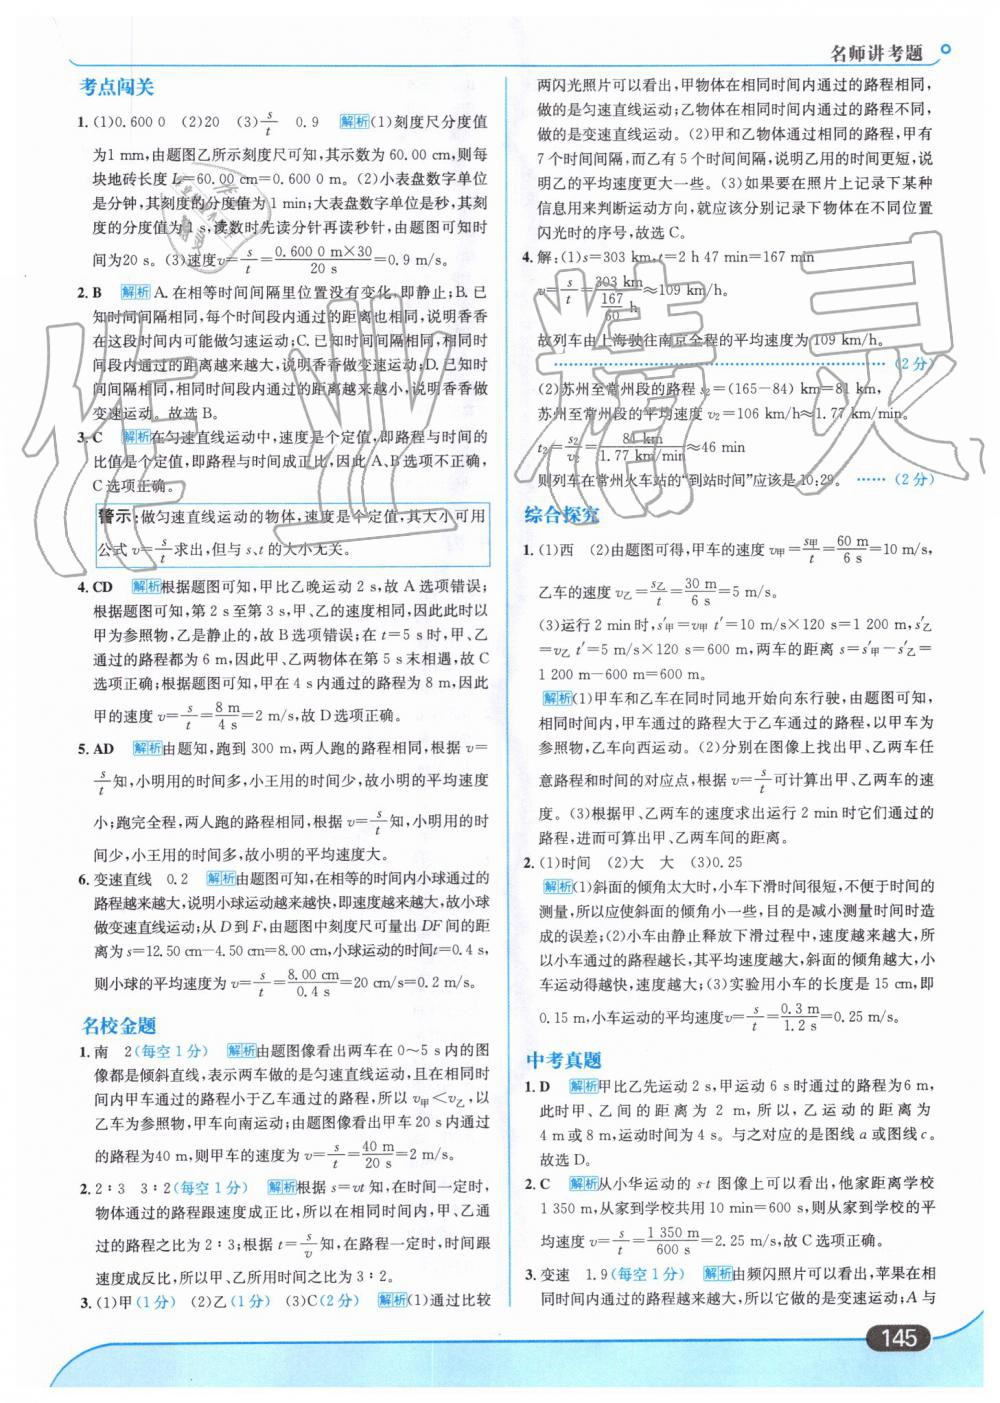 名师讲考题
考点闯关
1. (1)0.600 0 (2)20 (3)s/t 0.9 解析(1)刻度尺分度值
为1 mm,由题图乙所示刻度尺可知,其示数为 60.00 cm,则每
块地砖长度 L=60.00 cm=0.600 0 m。(2)小表盘数字单位
是分钟,其刻度的分度值为 1 min;大表盘数字单位是秒,其刻
度的分度值为 1 s,读数时先读分针再读秒针,由题图可知时
间为20 s。(3)速度v=s/t=0.600 0 m×30/20 s=0.9 m/s。
2. B 解析 A. 在相等时间间隔里位置没有变化,即静止;B. 已
知时间间隔相同,每个时间段内通过的距离也相同,说明香香
在这段时间内可能做匀速运动;C. 已知时间间隔相同,相同时
间段内通过的距离越来越大,说明香香做变速运动;D. 已知时
间间隔相同,相同时间段内通过的距离越来越小,说明香香做
变速运动。故选 B。
3. C 解析在匀速直线运动中,速度是个定值,即路程与时间的
比值是个定值,即路程与时间成正比,因此 A、B 选项不正确,
C选项正确。
警示:做匀速直线运动的物体,速度是个定值,其大小可用
公式 v=s/t求出,但与 s、t 的大小无关。
4. CD 解析根据题图可知,甲比乙晚运动 2 s,故 A 选项错误;
根据题图可知,第 2 s至第 3 s,甲、乙的速度相同,因此此时以
甲为参照物,乙是静止的,故 B 选项错误;在 t=5 s时,甲、乙
通过的路程都为 6 m,因此甲、乙两物体在第 5 s末相遇,故 C
选项正确;根据题图可知,甲在 4 s内通过的路程为 8 m,因此
甲的速度 v=s/t=8 m/4 s=2 m/s,故 D选项正确。
5. AD 解析由题知,跑到 300 m,两人跑的路程相同,根据 v=
s/t知,小明用的时间多,小王用的时间少,故小明的平均速度
小;跑完全程,两人跑的路程相同,根据 v=s/t知,小明用的时
间少,小王用的时间多,故小明的平均速度大。
6. 变速直线 0.2 解析由题图可知,在相等的时间内小球通过的
路程越来越大,说明小球运动越来越快,即速度越来越大,故小球
做变速直线运动;从 D 到 F,由题图中刻度尺可量出 DF 间的距
离为 s=12.50 cm-4.50 cm=8.00 cm,小球运动的时间t=0.4 s,
则小球的平均速度为 v=s/t=8.00 cm/0.4 s=20 cm/s=0.2 m/s。
名校金题
1. 南 2(每空 1 分) 解析由题图像看出两车在 0～5 s 内的图
像都是倾斜直线,表示两车做的是匀速直线运动,且在相同时
间内甲车通过的路程小于乙车通过的路程,所以 v甲<v乙,以
乙车为参照物,甲车向南运动;由题图像看出甲车 20 s内通过
的路程为40 m,则甲车的速度为 v=s/t=40 m/20 s=2 m/s。
2. 2∶3 3∶2(每空 1 分) 解析根据 s=vt 知,在时间一定时,
物体通过的路程跟速度成正比,所以在相同时间内,甲、乙通
过的路程之比为 2∶3;根据 t=s/v知,在路程一定时,时间跟
速度成反比,所以甲、乙所用时间之比为 3∶2。
3. (1)甲(1分) (2)乙(1分) (3)C(2分) 解析(1)通过比较
两闪光照片可以看出,甲物体在相同时间内通过的路程相同,
做的是匀速直线运动;乙物体在相同时间内通过的路程不同,
做的是变速直线运动。(2)甲和乙物体通过相同的路程,甲有
7 个时间间隔,而乙有 5 个时间间隔,说明乙用的时间更短,说
明乙的平均速度更大一些。(3)如果要在照片上记录下某种
信息用来判断运动方向,就应该分别记录下物体在不同位置
闪光时的序号,故选 C。
4. 解:(1)s=303 km,t=2 h 47 min=167 min
v=s/t=303 km/(167/60 h)≈109 km/h
故列车由上海驶往南京全程的平均速度为 109 km/h。
…… (2分)
(2)苏州至常州段的路程 s2=(165-84) km=81 km,
苏州至常州段的平均速度 v2=106 km/h≈1.77 km/min,
t2=s2/v2=81 km/1.77 km/min≈46 min
则列车在常州火车站的“到站时间”应该是 10:29。 …… (2分)
综合探究
1. (1)西 (2)由题图可得,甲车的速度 v甲=s甲/t=60 m/6 s=10 m/s,
乙车的速度 v乙=s乙/t=30 m/6 s=5 m/s。
(3)运行 2 min时,s′甲=v甲 t′=10 m/s×120 s=1 200 m,s′乙
=v乙 t′=5 m/s×120 s=600 m,两车的距离 s=s′甲-s′乙=
1 200 m-600 m=600 m。
解析(1)甲车和乙车在同时同地开始向东行驶,由题图可知,
相同时间内,甲车通过的路程大于乙车通过的路程,以甲车为
参照物,乙车向西运动。(2)分别在图像上找出甲、乙两车任
意路程和时间的对应点,根据 v=s/t可计算出甲、乙两车的速
度。(3)根据甲、乙两车的速度求出运行 2 min时它们通过的
路程,进而可算出甲、乙两车间的距离。
2. (1)时间 (2)大 大 (3)0.25
解析(1)斜面的倾角太大时,小车下滑时间很短,不便于时间的
测量,所以应使斜面的倾角小一些,目的是减小测量时间时造
成的误差;(2)小车由静止释放下滑过程中,速度越来越大,所
以小车通过的路程越长,其平均速度越大,斜面的倾角越大,小
车运动得越快,速度越大;(3)实验用小车的长度是 15 cm,即
0.15 m,小车运动的平均速度v=s/t=0.3 m/1.2 s=0.25 m/s。
中考真题
1. D 解析甲比乙先运动 2 s,甲运动 6 s时通过的路程为6 m,
此时甲、乙间的距离为 2 m,所以,乙运动的距离为
4 m或 8 m,运动时间为 4 s。与之对应的是图线 a 或图线 c。
故选 D。
2. C 解析从小华运动的 s-t 图像上可以看出,他家距离学校
1 350 m,从家到学校共用 10 min=600 s,则从家到学校的平
均速度 v=s/t=1 350 m/600 s=2.25 m/s,故 C选项正确。
3. 变速 1.9(每空 1 分) 解析由频闪照片可以看出,苹果在相
同时间内通过的路程越来越大,所以它做的是变速运动;A 与
145
作业精灵